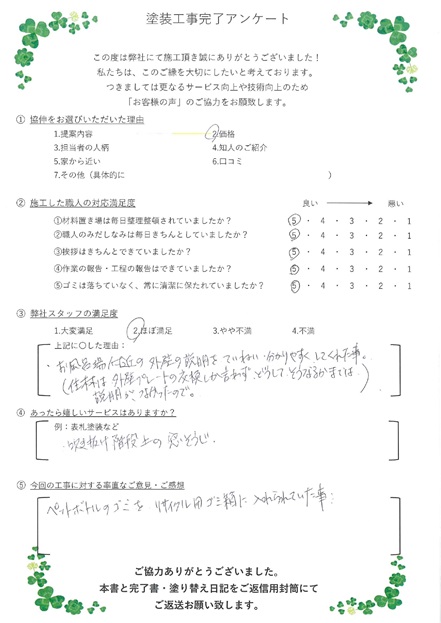 塗装工事完了アンケート
この度は弊社にて施工頂き誠にありがとうございました！
私たちは、このご縁を大切にしたいと考えております。
つきましては更なるサービス向上や技術向上のため
「お客様の声」のご協力をお願致します。
① 協伸をお選びいただいた理由
1.提案内容 2.価格
3.担当者の人柄 4.知人のご紹介
5.家から近い 6.口コミ
7.その他（具体的に ）
② 施工した職人の対応満足度 良い 悪い
①材料置き場は毎日整理整頓されていましたか？ 5 ・ 4 ・ 3 ・ 2 ・ 1
②職人のみだしなみは毎日きちんとしていましたか？ 5 ・ 4 ・ 3 ・ 2 ・ 1
③挨拶はきちんとできていましたか？ 5 ・ 4 ・ 3 ・ 2 ・ 1
④作業の報告・工程の報告はできていましたか？ 5 ・ 4 ・ 3 ・ 2 ・ 1
⑤ゴミは落ちていなく、常に清潔に保たれていましたか？ 5 ・ 4 ・ 3 ・ 2 ・ 1
③ 弊社スタッフの満足度
1.大変満足 2.ほぼ満足 3.やや不満 4.不満
上記に〇した理由：
・お風呂場付近の外壁の説明をていねい、分かりやすくしてくれた事。
外壁プレートの交換しか言わず、どうしてそうなるかまでは
説明がなかったので。
④ あったら嬉しいサービスはありますか？
例：表札塗装など
吹き抜け階段上の窓そうじ。
⑤ 今回の工事に対する率直なご意見・ご感想
ペットボトルのゴミを リサイクル用ゴミ箱に 入れられていた事
ご協力ありがとうございました。
本書と完了書・塗り替え日記をご返信用封筒にて
ご返送お願い致します。